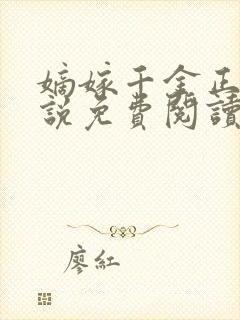 嫡嫁千金正
說免費閱讀
廖紅